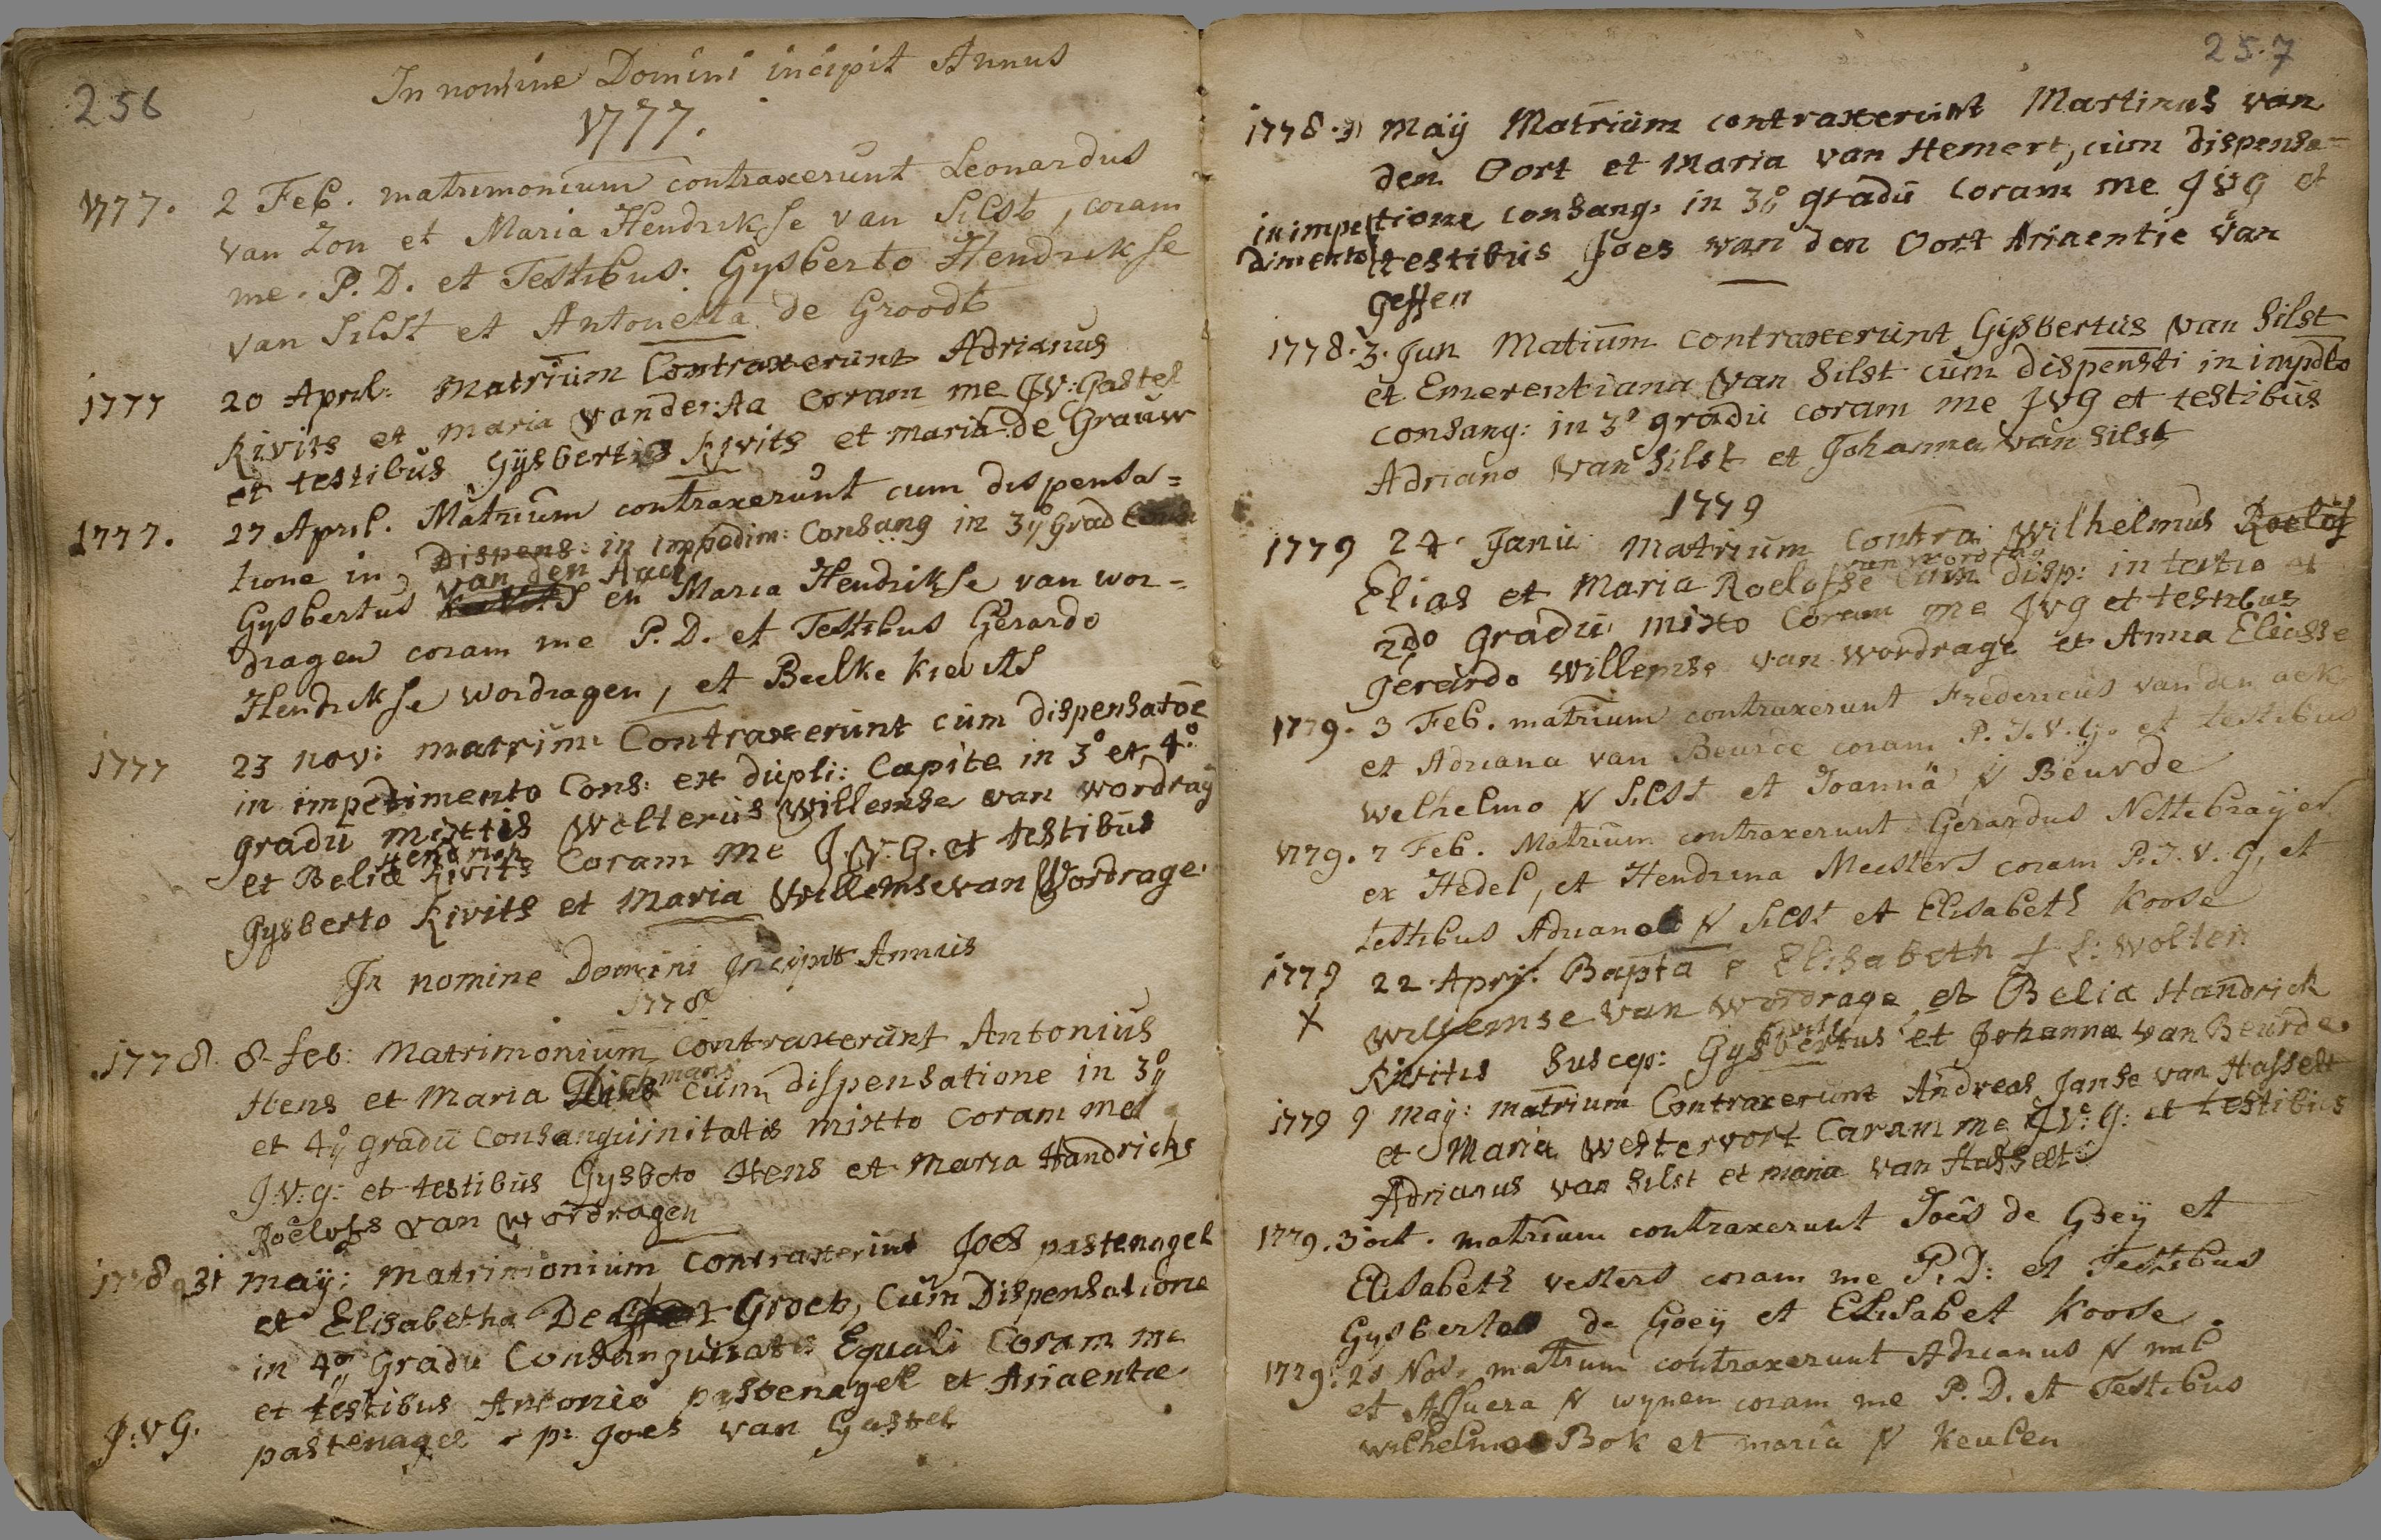 256
In nomine Domini incipit Annus
1777.
1777. 2 Feb. matrimonium contraxerunt Leonardus
van Zon et Maria Hendrikse van Silst, coram
me. P. D. et Testibus: Gysberto Hendrikse
van Silst et Antonetta de Groodt
1777 20 April: Matrium Contraxerunt Adrianus
Kivits et maria vander Aa coram me J V: Gastel
et testibus Gijsbertis Kivits et maria de Grauw
1777. 27 April. Matrium contraxerunt cum dispensa=
tione in Dispens: in impedim: Consang in 3ij grad
van den Aack
Gysbertus en Maria Hendrikse van wor-
dragen coram me P. D. et Testibus Gerardo
Hendrikse wordragen, et Beelke Kievits
1777 23 nov: matrim Contraxerunt cum dispensatoe
in impedimento Cons: ex dupli: Capite in 3o et 4o
gradu mixtis Wolterus Willemse van wordrag
Hendrick
et Belia Kivits Coram me J. V. G. et testibus
Gysberto Kivits et Maria Willemse van Wordrage.
In nomine Domini Incipit Annus
1778
1778. 8 feb: Matrimonium contraxerunt Antonius
mans
Hens et Maria cum dispensatione in 3ij
et 4ij gradu Consanguinitatis mixto coram me
J: V: g: et testibus Gysbeto Hens et Maria Handricks
Roelofs van Wordragen
1778 31 may: Matrimonium Contraxerint Joes pastenagel
et Elisabetha De Groet, Cum Dispensatione
in 4o Gradu Consanguinatis Equali Coram me
et testibus Antonio pastenagel et Ariaentie
J: v G. pastenagel p: Joes van Gastel
25.7
1778. 31 maÿ Matrium contraxerunt Martinus van
den Oort et Maria van Hemert, cum dispensa=
in impe tione consang: in 3o gradu Coram me J V G et
dimento testibus Joes van den Oort Ariaentie van
Geffen
1778. 3. Jun Matium contraxerunt Gijsbertus van Silst
et Emerentiana van Silst cum dispensti in impdto
consang: in 3o gradu coram me J V G et testibus
Adriano van Silst et Johanna van Silst
1779
1779 24. Janu Matrium Contra: Wilhelmus Roelof
van wordrag
Elias et Maria Roelofse cum disp: in tertio et
2do gradu mixto Coram me J v g et testibus
Gerardo Willemse van Wordrage et Anna Eliasse
1779. 3 Feb. matrium contraxerunt Fredericus van den aek
et Adriana van Beurde coram P. J. V. G. et testibus
Welhelmo V Silst et Joanna V Beurde
1779. 7 Feb. Matrium contraxerunt Gerardus Nettebraijer
ex Hedel, et Hendrina Meesters coram P. J. V. G, et
testibus Adriano V Silst et Elisabeth Koose
1779 22 Apri: Bapta e Elisabeth f L: Wolten
X Willemse van Wordrage et Belia Handrick
Kivits
Kivitis Suscep: Gysbertus et Johanna van Beurde.
1779 9 May: matrium Contraxerunt Andreas Janse van Hasselt
et Maria Westervort Caram me J V: G: et testibus
Adrianus van Silst et maria van Hasselt
1779. 3 oct. matrium contraxerunt Joês de Goeij et
Elisabeth vesters coram me P. D: et Testibus
Gysberto de Goeij et Elisabet Koose.
1779. 21 Nov. matrum contraxerunt Adrianus V mil
et Assuera V wynen coram me P. D. et Testibus
wilhelmo Bok et maria V Keulen